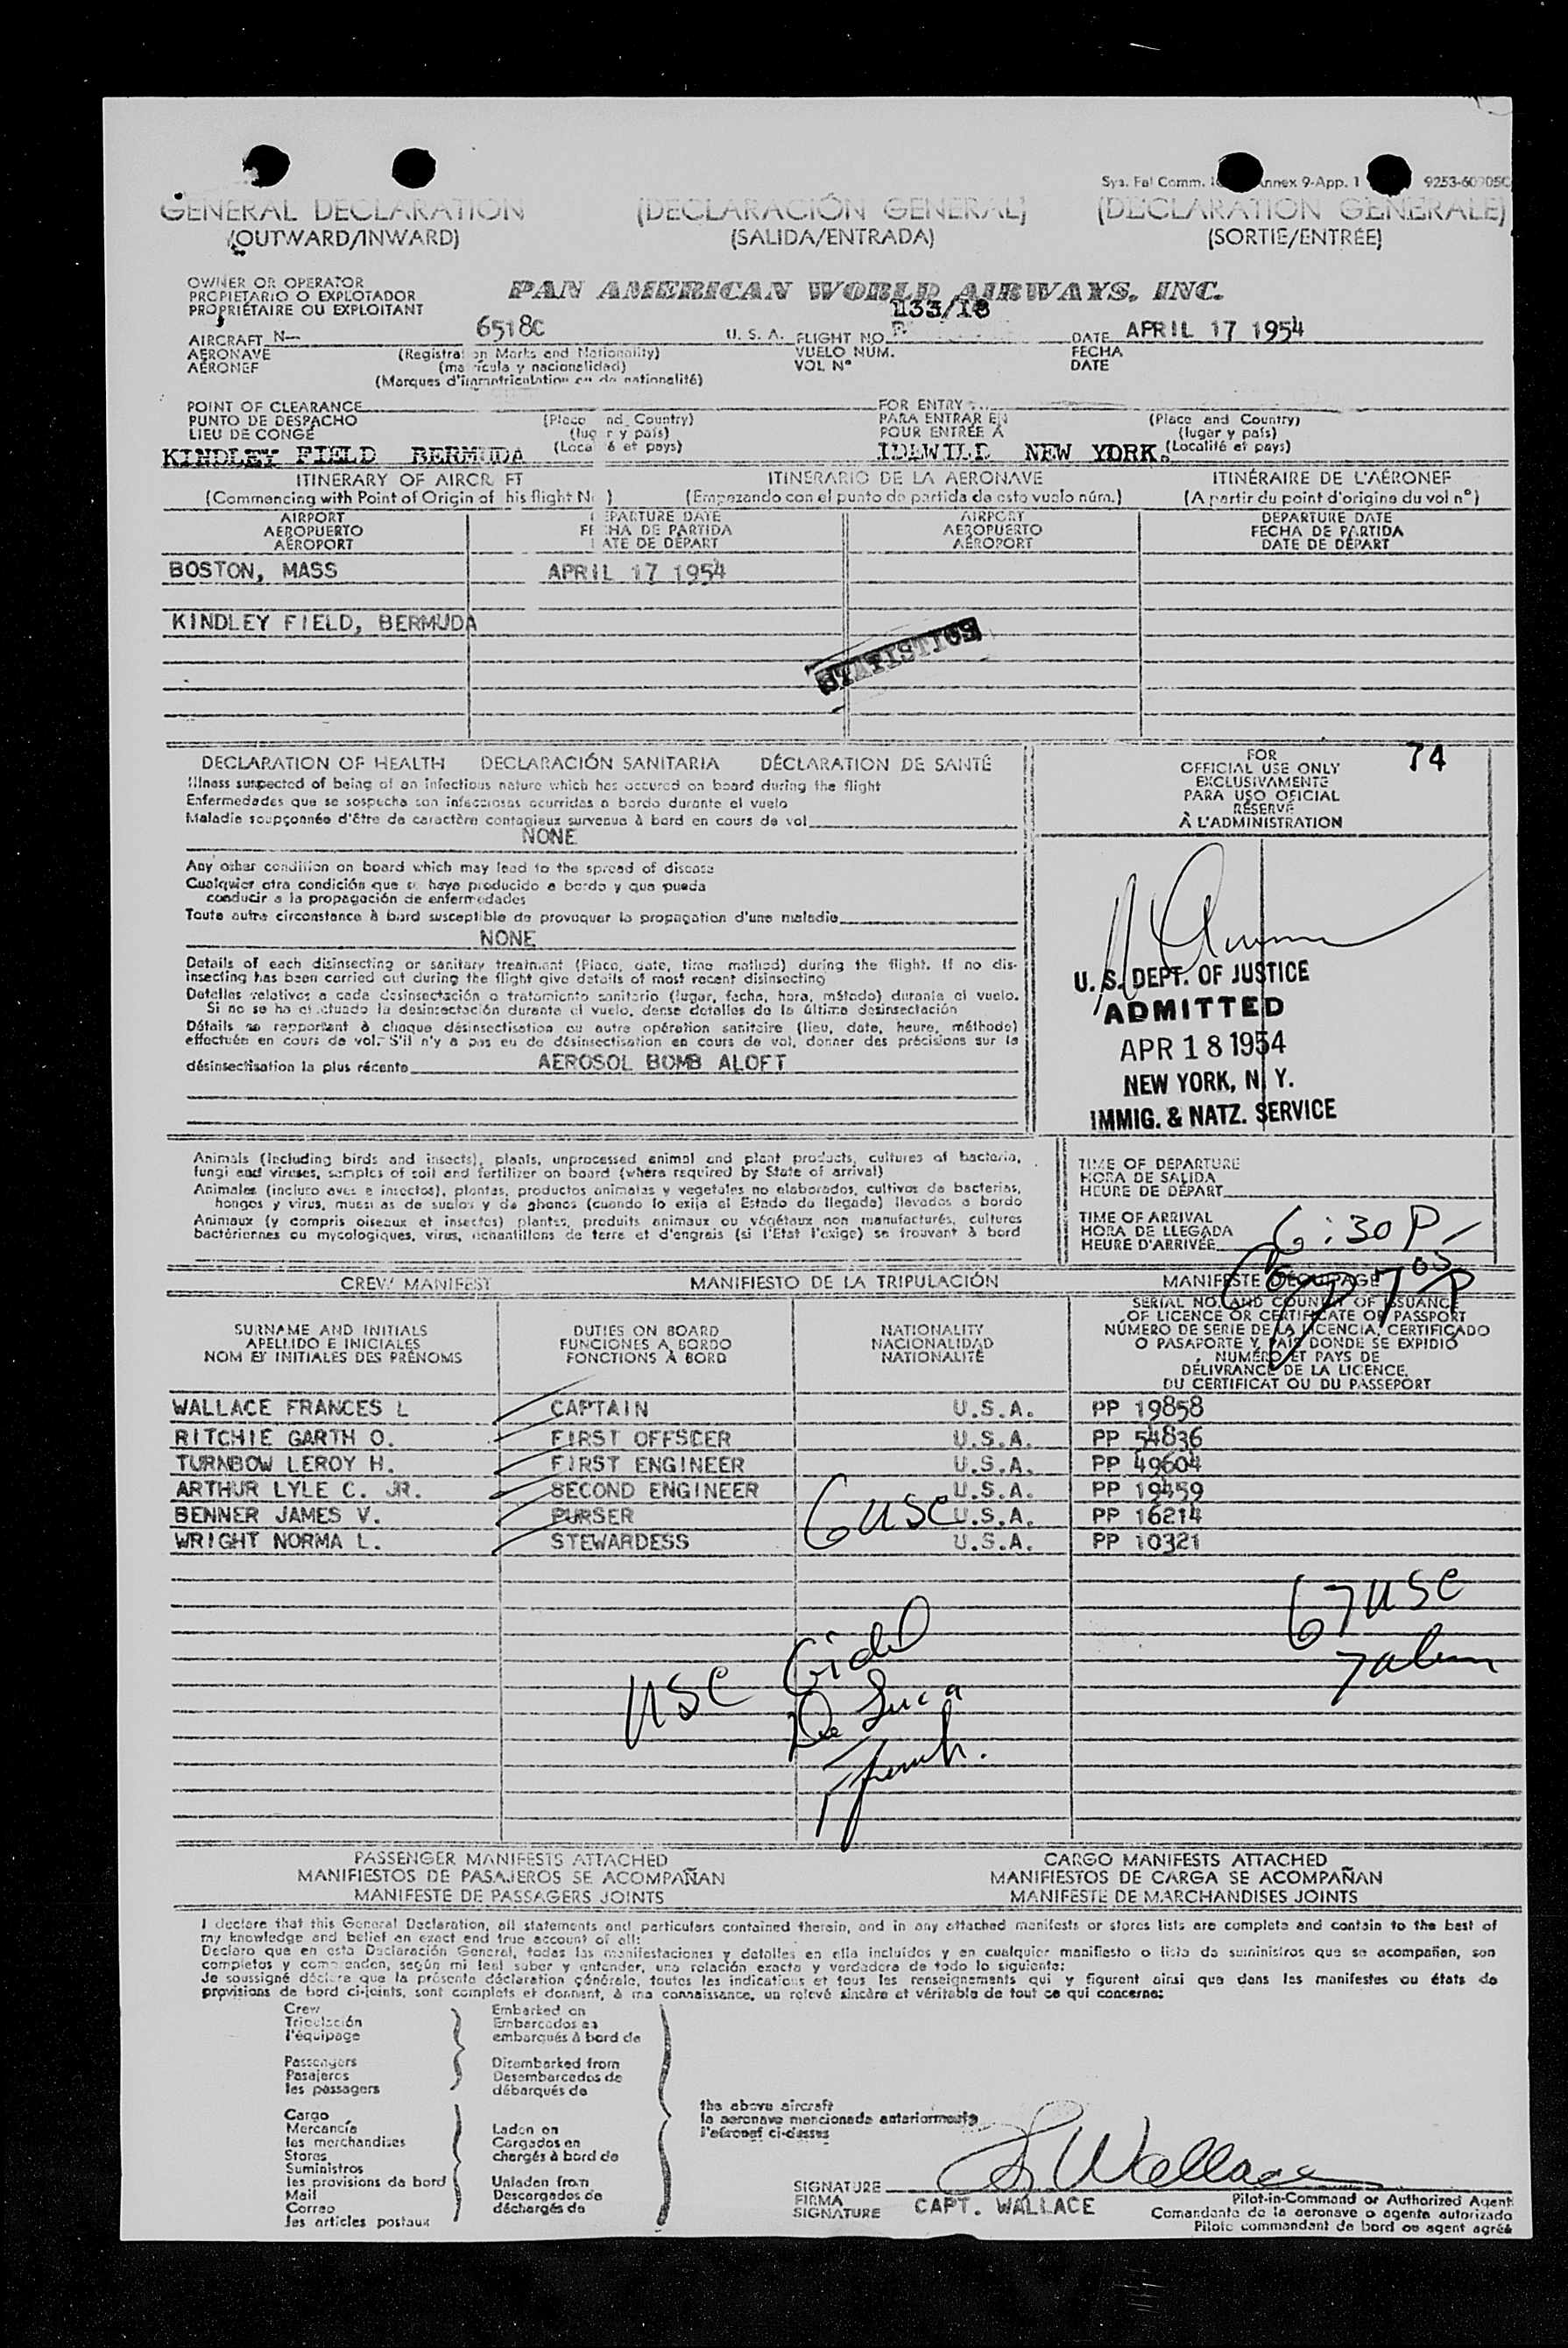 Sys. Fal Comm. Annex 9-App. 1 9253-60705C
GENERAL DECLARATION (DECLARACIÓN GENERAL) (DECLARATION GENERALE)
(OUTWARD/INWARD) (SALIDA/ENTRADA) (SORTIE/ENTRÉE)
OWNER OR OPERATOR
PROPIETARIO O EXPLOTADOR
PROPRIÉTAIRE OU EXPLOITANT
PAN AMERICAN WORLD AIRWAYS, INC.
1133/18
AIRCRAFT N— 6518C U. S. A. FLIGHT NO. DATE APRIL 17 1954
AERONAVE (Registration Marks and Nationality) VUELO NUM. FECHA
AÉRONEF (matrícula y nacionalidad) VOL N° DATE
(Marques d'immatriculation ou de nationalité)
POINT OF CLEARANCE FOR ENTRY
PUNTO DE DESPACHO (Place and Country) PARA ENTRAR EN (Place and Country)
LIEU DE CONGÉ (lugar y país) POUR ENTRÉE À (lugar y país)
KINDLEY FIELD BERMUDA (Localité et pays) IDLWILD NEW YORK. (Localité et pays)
ITINERARY OF AIRCRAFT ITINERARIO DE LA AERONAVE ITINÉRAIRE DE L'AÉRONEF
(Commencing with Point of Origin of this flight No.) (Empezando con el punto de partida de esto vuelo núm.) (A partir du point d'origine du vol n°)
AIRPORT DEPARTURE DATE AIRPORT DEPARTURE DATE
AEROPUERTO FECHA DE PARTIDA AEROPUERTO FECHA DE PARTIDA
AÉROPORT DATE DE DÉPART AÉROPORT DATE DE DÉPART
BOSTON, MASS APRIL 17 1954
KINDLEY FIELD, BERMUDA
STATISTICS
DECLARATION OF HEALTH DECLARACIÓN SANITARIA DÉCLARATION DE SANTÉ
Illness suspected of being of an infectious nature which has occured on board during the flight
Enfermedades que se sospecha son infecciosas ocurridas a bordo durante el vuelo
Maladie soupçonnée d'être de caractère contagieux survenue à bord en cours de vol
NONE
Any other condition on board which may lead to the spread of disease
Cualquier otra condición que se haya producido a bordo y que pueda
conducir a la propagación de enfermedades
Toute autre circonstance à bord susceptible de provoquer la propagation d'une maladie
NONE
Details of each disinsecting or sanitary treatment (Place, date, time method) during the flight. If no dis-
insecting has been carried out during the flight give details of most recent disinsecting
Detalles relativos a cada desinsectación o tratamiento sanitario (lugar, fecha, hora, método) durante el vuelo.
Si no se ha efectuado la desinsectación durante el vuelo, dense detalles de la última desinsectación
Détails se rapportant à chaque désinsectisation ou autre opération sanitaire (lieu, date, heure, méthode)
effectuée en cours de vol. S'il n'y a pas eu de désinsectisation en cours de vol, donner des précisions sur la
désinsectisation la plus récente AEROSOL BOMB ALOFT
FOR
OFFICIAL USE ONLY
EXCLUSIVAMENTE
PARA USO OFICIAL
RÉSERVÉ
À L'ADMINISTRATION
74
U. S. DEPT. OF JUSTICE
ADMITTED
APR 18 1954
NEW YORK, N. Y.
IMMIG. & NATZ. SERVICE
Animals (including birds and insects), plants, unprocessed animal and plant products, cultures of bacteria,
fungi and viruses, samples of soil and fertilizer on board (where required by State of arrival)
Animales (incluso aves e insectos), plantas, productos animales y vegetales no elaborados, cultivos de bacterias,
hongos y virus, muestras de suelos y de abonos (cuando lo exija el Estado de llegada) llevados a bordo
Animaux (y compris oiseaux et insectes) plantes, produits animaux ou végétaux non manufacturés, cultures
bactériennes ou mycologiques, virus, échantillons de terre et d'engrais (si l'Etat l'exige) se trouvant à bord
TIME OF DEPARTURE
HORA DE SALIDA
HEURE DE DÉPART
TIME OF ARRIVAL
HORA DE LLEGADA
HEURE D'ARRIVÉE
6:30 P
7 05 P
CREW MANIFEST MANIFIESTO DE LA TRIPULACIÓN MANIFESTE D'ÉQUIPAGE
SURNAME AND INITIALS
APELLIDO E INICIALES
NOM ET INITIALES DES PRÉNOMS
DUTIES ON BOARD
FUNCIONES A BORDO
FONCTIONS À BORD
NATIONALITY
NACIONALIDAD
NATIONALITÉ
SERIAL NO. AND COUNTRY OF ISSUANCE
OF LICENCE OR CERTIFICATE OR PASSPORT
NÚMERO DE SERIE DE LA LICENCIA, CERTIFICADO
O PASAPORTE Y PAÍS DONDE SE EXPIDIÓ
NUMÉRO ET PAYS DE
DÉLIVRANCE DE LA LICENCE,
DU CERTIFICAT OU DU PASSEPORT
WALLACE FRANCES L CAPTAIN U.S.A. PP 19858
RITCHIE GARTH O. FIRST OFFSCER U.S.A. PP 54836
TURNBOW LEROY H. FIRST ENGINEER U.S.A. PP 49604
ARTHUR LYLE C. JR. SECOND ENGINEER U.S.A. PP 19459
BENNER JAMES V. PURSER U.S.A. PP 16214
WRIGHT NORMA L. STEWARDESS U.S.A. PP 10321
6 USC
67 USC
7 alien
USC
De Luca
PASSENGER MANIFESTS ATTACHED CARGO MANIFESTS ATTACHED
MANIFIESTOS DE PASAJEROS SE ACOMPAÑAN MANIFIESTOS DE CARGA SE ACOMPAÑAN
MANIFESTE DE PASSAGERS JOINTS MANIFESTE DE MARCHANDISES JOINTS
I declare that this General Declaration, all statements and particulars contained therein, and in any attached manifests or stores lists are complete and contain to the best of
my knowledge and belief an exact end true account of all:
Declaro que en esta Declaración General, todas las manifestaciones y detalles en ella incluidos y en cualquier manifiesto o lista de suministros que se acompañen, son
completos y comprenden, según mi leal saber y entender, una relación exacta y verdadera de todo lo siguiente:
Je soussigné déclare que la présente déclaration générale, toutes les indications et tous les renseignements qui y figurent ainsi que dans les manifestes ou états de
provisions de bord ci-joints, sont complets et donnent, à ma connaissance, un relevé sincère et véritable de tout ce qui concerne:
Crew
Tripulación
l'équipage
Passengers
Pasajeros
les passagers
Cargo
Mercancía
les merchandises
Stores
Suministros
les provisions de bord
Mail
Correo
les articles postaux
Embarked on
Embarcados en
embarqués à bord de
Disembarked from
Desembarcados de
débarqués de
Laden on
Cargados en
chargés à bord de
Unladen from
Descargados de
déchargés de
the above aircraft
la aeronave mencionada anteriormente
l'aéronef ci-dessus
SIGNATURE
FIRMA
SIGNATURE
Wallace
CAPT. WALLACE
Pilot-in-Command or Authorized Agent
Comandante de la aeronave o agente autorizado
Pilote commandant de bord ou agent agréé